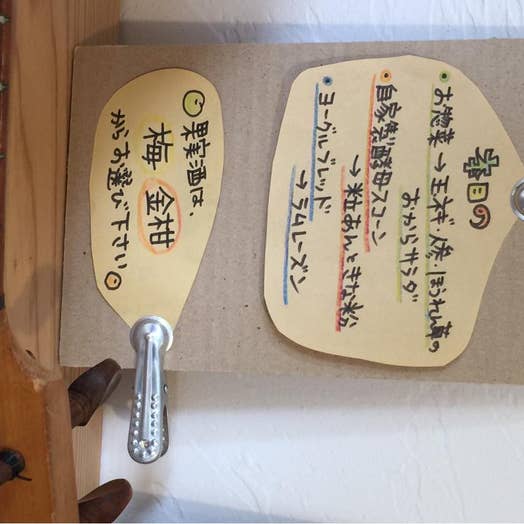 本日の
お惣菜→玉ネギ・人参・ほうれん草の
おからサラダ
自家製酵母スコーン
→粒あんときな粉
ヨーグルブレッド
→ラムレーズン
果実酒は、
梅 金柑
がお選び下さい。